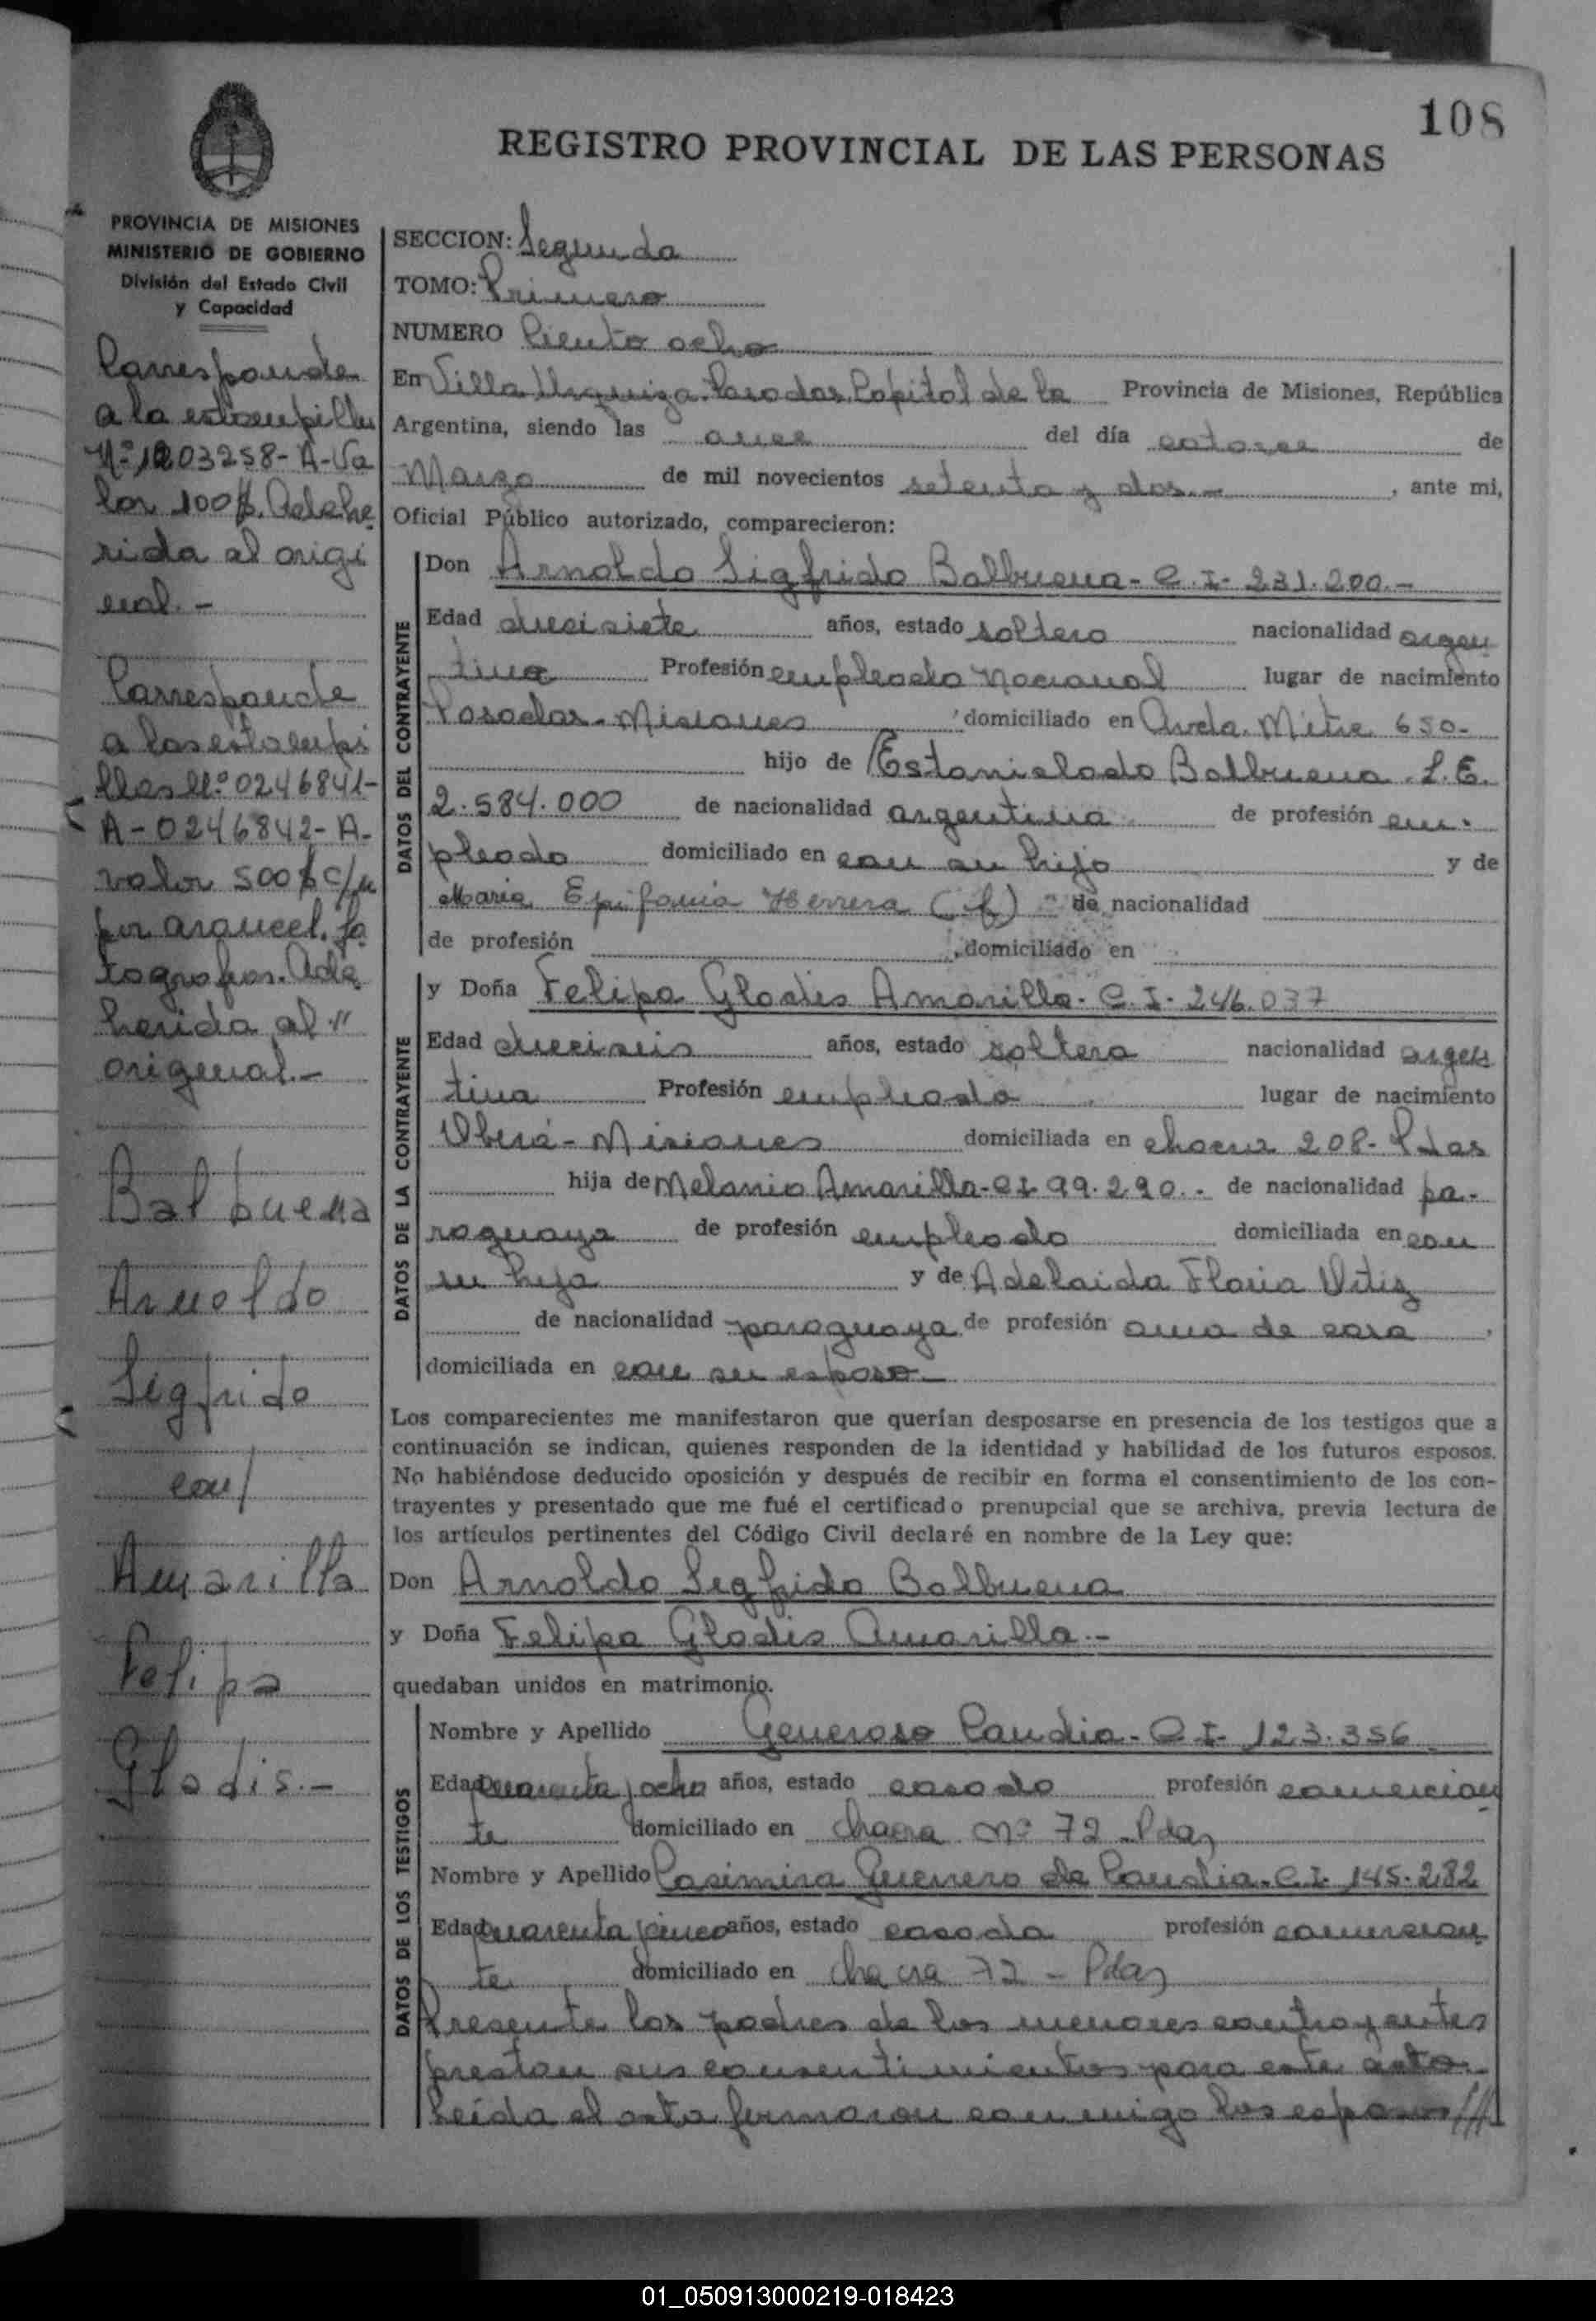 108
REGISTRO PROVINCIAL DE LAS PERSONAS
PROVINCIA DE MISIONES
MINISTERIO DE GOBIERNO
División del Estado Civil
y Capacidad
Corresponde
a la estampilla
Nº 1203258-A-Va
lor 100$. Adehe
rida al origi
nal.-
Corresponde
a las estampi
llas Nº 0246841-
A-0246842-A-
valor 500$ c/u
por arancel. fo
tografias. Ade
herida al "
original.-
Balbuena
Arnoldo
Sigfrido
con/
Amarilla
Felipa
Gladis.-
SECCION: Segunda
TOMO: Primero
NUMERO Ciento ocho
En Villa Urquiza. Posadas, Capital de la Provincia de Misiones, República
Argentina, siendo las once del día catorce de
Marzo de mil novecientos setenta y dos.- , ante mi,
Oficial Público autorizado, comparecieron:
DATOS DEL CONTRAYENTE
Don Arnoldo Sigfrido Balbuena - C.I- 231.200.-
Edad diecisiete años, estado soltero nacionalidad argen
tina Profesión empleado Nacional lugar de nacimiento
Posadas-Misiones domiciliado en Avda. Mitre 650-
hijo de Estanislado Balbuena. L.E.
2.584.000 de nacionalidad argentina de profesión em-
pleado domiciliado en con su hijo y de
Maria Epifania Herrera (f) de nacionalidad
de profesión , domiciliado en
DATOS DE LA CONTRAYENTE
y Doña Felipa Gladis Amarilla- C.I- 246.037
Edad dieciseis años, estado soltera nacionalidad argen
tina Profesión empleada lugar de nacimiento
Oberá-Misiones domiciliada en chacra 208- Pdas
hija de Melanio Amarilla-CI 99.290.- de nacionalidad pa-
raguaya de profesión empleado domiciliada en con
su hija y de Adelaida Flavia Ortiz
de nacionalidad paraguaya de profesión ama de casa ,
domiciliada en con su esposo.-
Los comparecientes me manifestaron que querían desposarse en presencia de los testigos que a
continuación se indican, quienes responden de la identidad y habilidad de los futuros esposos.
No habiéndose deducido oposición y después de recibir en forma el consentimiento de los con-
trayentes y presentado que me fué el certificado prenupcial que se archiva, previa lectura de
los artículos pertinentes del Código Civil declaré en nombre de la Ley que:
Don Arnoldo Sigfrido Balbuena
y Doña Felipa Gladis Amarilla.-
quedaban unidos en matrimonio.
DATOS DE LOS TESTIGOS
Nombre y Apellido Generoso Candia- C.I- 123.356
Edad cuarenta y ocho años, estado casado profesión comercian
te domiciliado en chacra Nº 72 - Pdas
Nombre y Apellido Casimira Guerrero de Candia-C.I- 145.282
Edad cuarenta y cinco años, estado casada profesión comercian
te domiciliado en chacra 72 - Pdas
Presente los padres de los menores contrayentes
prestan sus consentimientos para este acto.
Leída el acta firmaron conmigo los esposos///
01_050913000219-018423